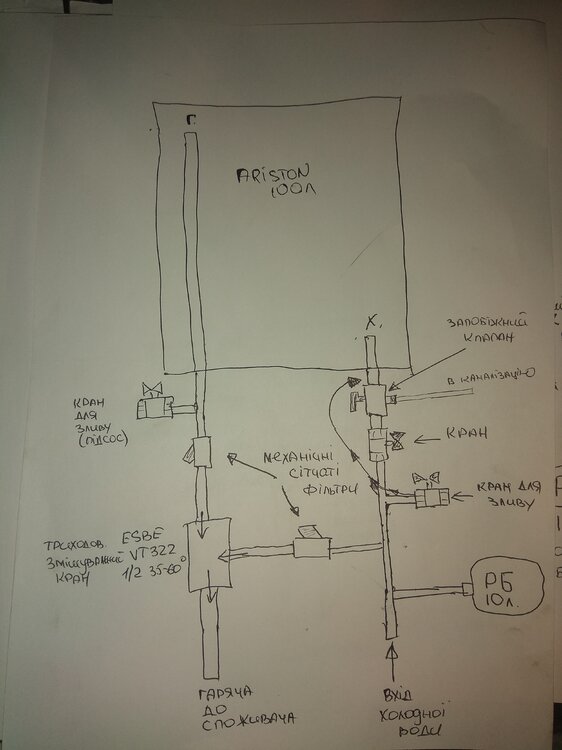 Г
ARISTON
100Л
Х.
ЗАПОБІЖНИЙ
КЛАПАН
В КАНАЛІЗАЦІЮ
КРАН
ДЛЯ
ЗЛИВУ
(ПІДСОС)
КРАН
МЕХАНІЧНІ
СІТЧАТІ
ФІЛЬТРИ
КРАН ДЛЯ
ЗЛИВУ
ТРИХОДОВ. ESBE
ЗМІШУВАЛЬНИЙ VT322
КРАН 1/2 35-60°
РБ
10л.
ГАРЯЧА
ДО
СПОЖИВАЧА
ВХІД
ХОЛОДНОЇ
ВОДИ